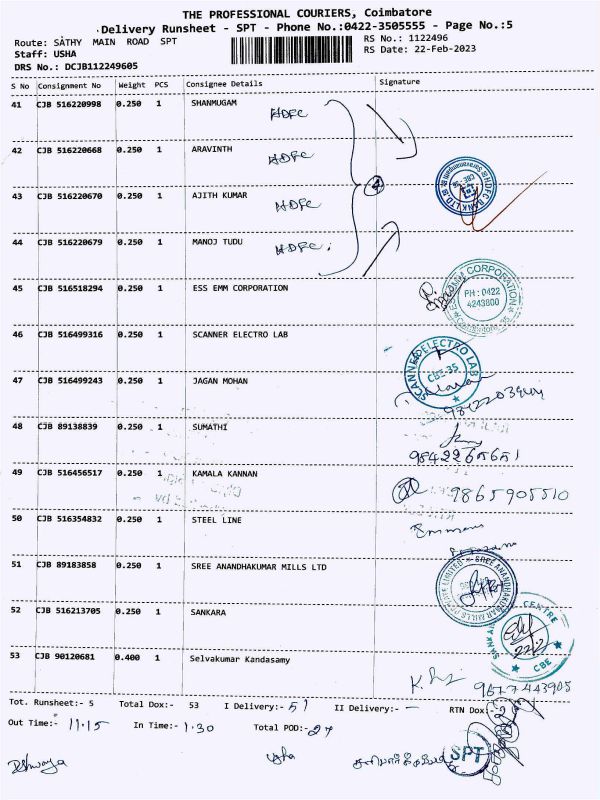 THE PROFESSIONAL COURIERS, Coimbatore
Delivery Runsheet - SPT - Phone No.:0422-3505555 - Page No.:5
Route: SATHY MAIN ROAD SPT
RS No.: 1122496
Staff: USHA
RS Date: 22-Feb-2023
DRS No.: DCJB112249605
S No Consignment No Weight PCS Consignee Details Signature
41 CJB 516220998 0.250 1 SHANMUGAM HDFC
42 CJB 516220668 0.250 1 ARAVINTH HDFC
4
HDFC BANK LTD
43 CJB 516220670 0.250 1 AJITH KUMAR HDFC
44 CJB 516220679 0.250 1 MANOJ TUDU HDFC.
45 CJB 516518294 0.250 1 ESS EMM CORPORATION
PH : 0422
4243800
46 CJB 516499316 0.250 1 SCANNER ELECTRO LAB
SCANNER ELECTRO LAB
CBE-35
47 CJB 516499243 0.250 1 JAGAN MOHAN
48 CJB 89138839 0.250 1 SUMATHI
9842265651
49 CJB 516456517 0.250 1 KAMALA KANNAN
9865905510
50 CJB 516354832 0.250 1 STEEL LINE
51 CJB 89183858 0.250 1 SREE ANANDHAKUMAR MILLS LTD
SREE ANANDHAKUMAR MILLS
52 CJB 516213705 0.250 1 SANKARA
CENTRE
CBE
53 CJB 90120681 0.400 1 Selvakumar Kandasamy
9677443905
Tot. Runsheet:- 5 Total Dox:- 53 I Delivery:- 51 II Delivery:- — RTN Dox:- 2
Out Time:- 11.15 In Time:- 1.30 Total POD:- 27
Usha
SPT